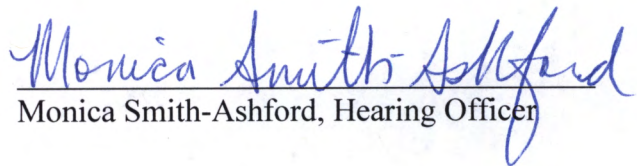 Monica Smith-Ashford
Monica Smith-Ashford, Hearing Officer